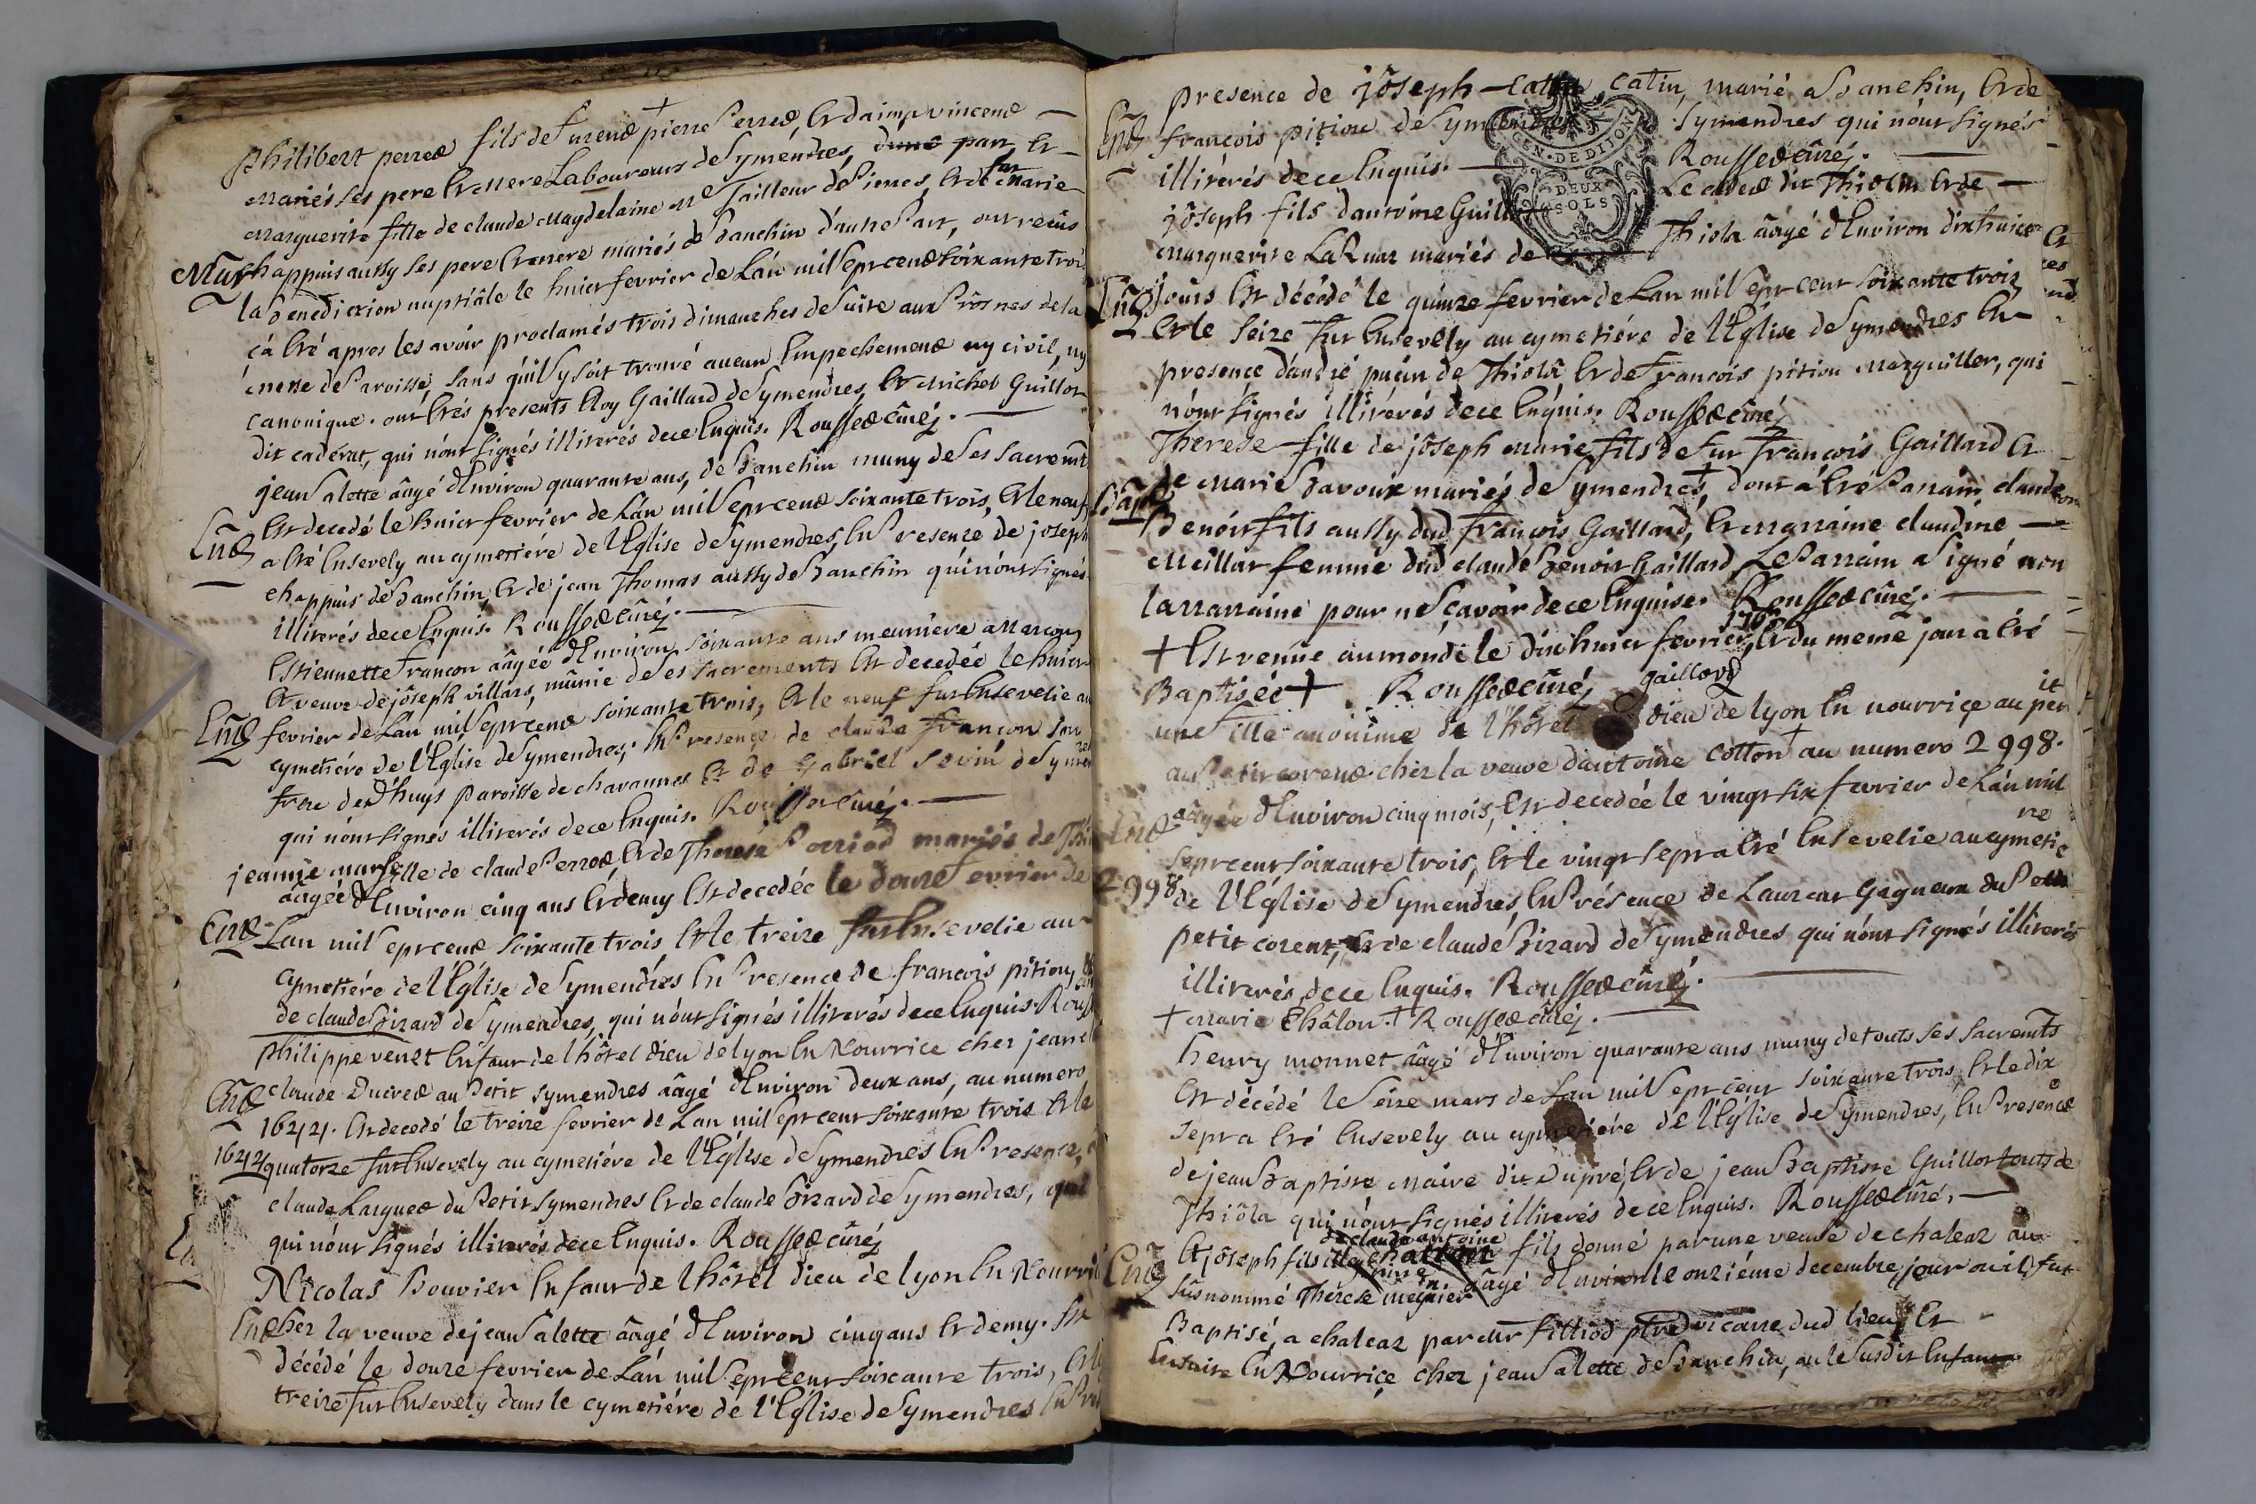 philibert perret fils de Laurent pierre Perret, Et daimpvincent
mariés ses pere Et mere Laboureurs de Symendres, dune part, Et
marguerite fille de claude magdelaine me Tailleur de Pierres, Et de fut marie
Mar chappuis aussy ses pere Et mere mariés de Banchin d'autre Part, ont recûs
la Benediction nuptiâle le huict fevrier de L'an mil Sept cent soixante trois
çà Eté apres les avoir proclamés trois dimanches de suite aux Prosnes de la
messe de Paroisse, sans qu'il y soit trouvé aucun Empechement ny civil, ny
canonique. ont Etés presents Eloy Gaillard de Symendres, Et michel Guillot
dit cadérat, qui n'ont signés illiterés de ce Enquis. Roussel cûré.
jean Salette âagé d'Environ quarante ans, de Banchin muny de ses Sacremts
Est decedé le huict fevrier de L'an mil Sept cent soixante trois, Et le neuf
Ent a Eté Ensevely au cymetiére de l'Eglise de Symendres, En Presence de joseph
chappuis de Banchin, Et de jean Thomas aussy de Banchin qui n'ont signés
illiterés de ce Enquis. Roussel cûré.
Estiennette françon âagée d'Environ soixante ans meuniere a marcon
Et veuve de jôseph villars, mûnie de ses sacrements Est decedée le huict
Ent fevrier de Lan mil Sept cent soixante trois, Et le neuf fut Ensevelie au
cymetiére de l'Eglise de Symendres, En Presence de claude françon son
frere de d'huys paroisse de chavannes Et de Gabriel Sevin de Symen
qui n'ont signes illiterés de ce Enquis. Roussel cûré.
jeanne marie fille de claude Perret, Et de Therese Porriod mariés de Thi
âagée d'Environ cinq ans Et demy Est decedée le douze fevrier de
Ent Lan mil Sept cent soixante trois Et le treize fut Ensevelie au
cymetiére de l'Eglise de Symendres En Presence de francois pition, Et
de claude Bizard de Symendres, qui n'ont signés illiterés de ce Enquis. Rouss
philippe venet Enfant de l'hôtel Dieu de lyon En Nourrice chez jeanne
Ent claude Ducret au Petit Symendres âagé d'Environ deux ans, au numero
16244. Est decedé le treize fevrier de Lan mil Sept cent soixante trois Et le
16244 quatorze fut Ensevely au cymetiére de l'Eglise de Symendres En Presence, d
claude Largues du Petit Symendres Et de claude Bizard de Symendres, qui
qui n'ont signés illiterés de ce Enquis. Roussel cûré
Nicolas Bouvier Enfant de l'hôtel Dieu de lyon En Nourri
Ent chez la veuve de jean Salette âagé d'Environ cinq ans Et demy. Est
décédé le douze fevrier de L'an mil Sept cent soixante trois, Et le
treize fut Ensevely dans le cymetiére de l'Eglise de Symendres En Pre
presence de jôseph catin, marié a Banchin, Et de
Ent françois pition de Symendres Symendres qui n'ont signés
illiterés de ce Enquis. Roussel cûré.
GEN. DE DIJON
DEUX SOLS
jôseph fils d'antoine Guill Le cadet dit Thiola Et de
marguerite LaRuaz mariés de Thiola âagé d'Environ dix huict
Ent jours Est décédé le quinze fevrier de Lan mil Sept cent soixante trois
Et le seize fut Ensevely au cymetiére de l'Eglise de Symendres En
presence d'andré puçin de Thiola Et de francois pition marguiller, qui
n'ont signés illiterés de ce Enquis. Roussel cûré
Therese fille de jôseph marie fils de fut François Gaillard Et
de marie Savoux mariés de Symendres, dont a Eté Parrain claude
Bap Benoit fils aussy dud françois Gaillard, Et marraine claudine
meillar femme dud claude Benoit Gaillard, Le Parrain a signé non
la marraine pour ne sçavoir de ce Enquise. Roussel cûré.
+ Est venüe au monde le dix huict fevrier 1763, Et du meme jour a Eté
Baptisée + Roussel cûré, gaillard
une fille anonime de l'hôtel dieu de lyon En nourriçe au petit
au Petit corent chez la veuve d'antoine cotton au numero 2998.
Ent âagée d'Environ cinq mois, Est decedée le vingt six fevrier de L'an mil
Sept cent soixante trois, Et le vingt sept a Eté Ensevelie au cymetiere
2998 de l'Eglise de Symendres, En Présence de Laurent Gagneux du Petit
petit corent, Et de claude Bizard de Symendres qui n'ont signés illiterés
illiterés de ce Enquis. Roussel cûré.
+ marie Châlon. + Roussel cûré.
henry monnet âagé d'Environ quarante ans muny de touts ses sacremts
Est décédé le Seize mars de Lan mil Sept cent soixante trois, Et le dix
sept a Eté Ensevely au cymetiére de l'Eglise de Symendres, En Presence
de jean Baptiste maire dit Dupré, Et de jean Baptiste Guillot touts de
Thiôla qui n'ont signés illiterés de ce Enquis. Roussel cûré.
de claude antoine
Ent Et jôseph fils illegitime fils donné par une veuve de chaleaz au
susnommé Thérese meunier âagé d'Environ le onziéme decembre jour ou il fut
Baptisé, a chaleaz par mr filliod ptre vicaire dud lieu, Et
Ensuite En Nourriçe chez jean Salette de Banchin, ou le susdit Enfant